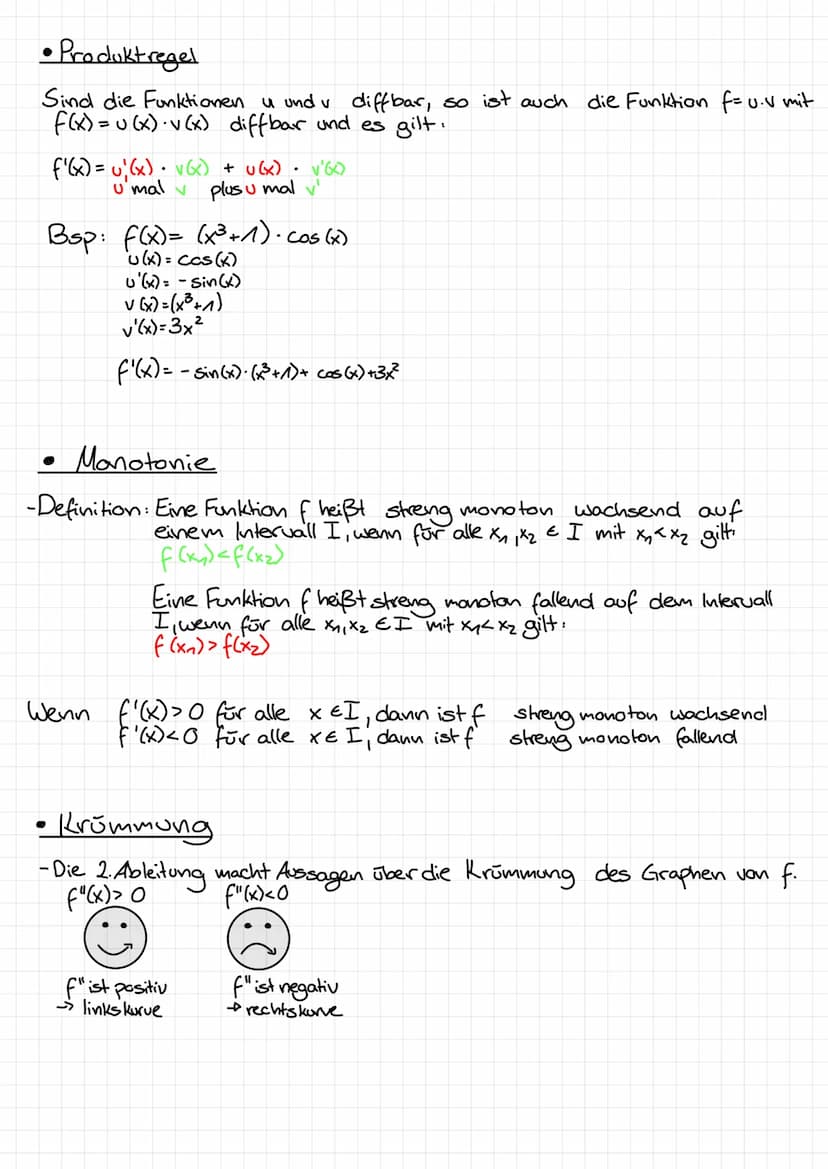 • Produktregel
Sind die Funktionen u und v diffbar, so ist auch die Funktion f=u·v mit
f(x)=u(x)·v(x) diffbar und es gilt:
f'(x)= u'(x) · v(x) + u(x) · v'(x)
u' mal v plus u mal v'
Bsp: f(x)= (x³+1)·cos(x)
u(x)=cos(x)
u'(x)= -sin(x)
v(x)=(x³+1)
v'(x)=3x²
f'(x)= -sin(x)·(x³+1)+ cos(x)+3x²
• Monotonie
-Definition: Eine Funktion f heißt streng monoton wachsend auf
einem Intervall I, wenn für alle x₁,x₂ ∈ I mit x₁<x₂ gilt:
f(x₁)<f(x₂)
Eine Funktion f heißt streng monoton fallend auf dem Intervall
I, wenn für alle x₁,x₂ ∈ I mit x₁<x₂ gilt:
f(x₁)>f(x₂)
Wenn f'(x)>0 für alle x ∈ I, dann ist f streng monoton wachsend
f'(x)<0 für alle x ∈ I, dann ist f streng monoton fallend
• Krümmung
-Die 2. Ableitung macht Aussagen über die Krümmung des Graphen von f.
f"(x)>0 f"(x)<0
f" ist positiv f" ist negativ
→ linkskurve → rechtskurve